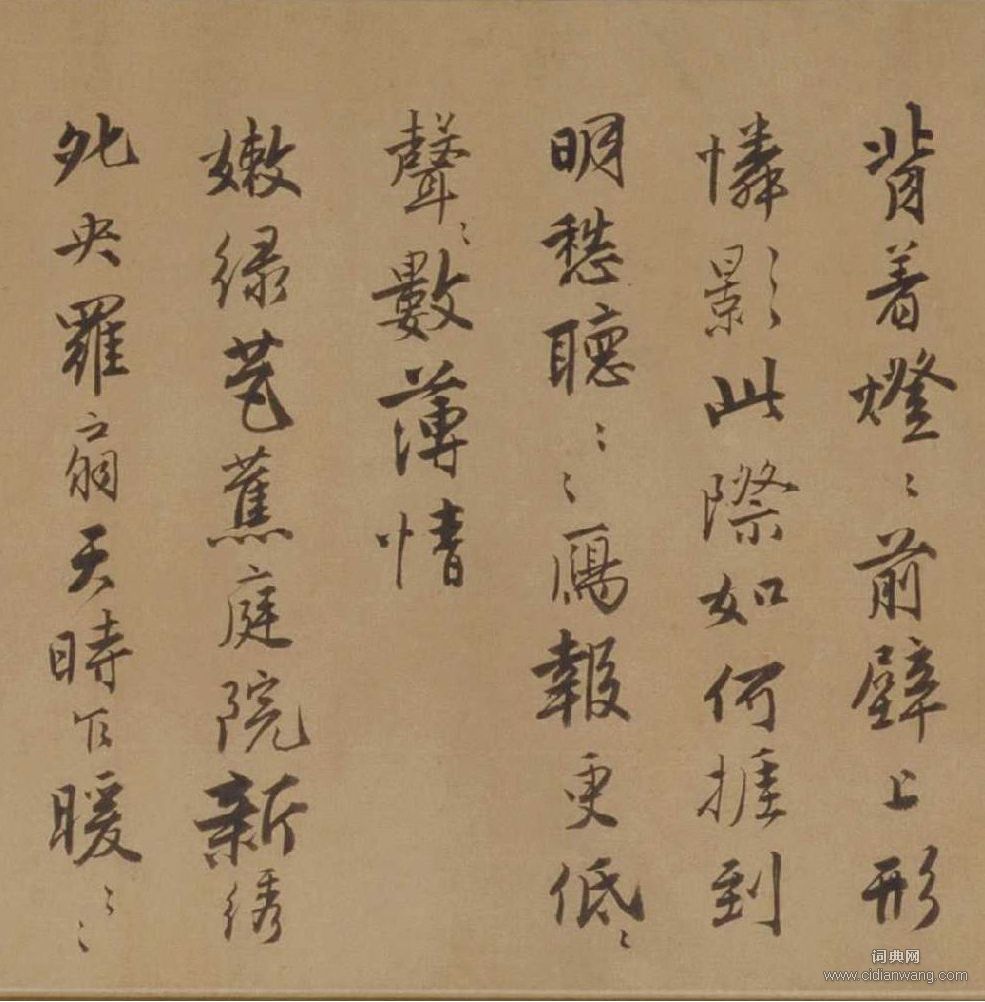 背着燈〻前壁上形
憐影此際如何捱到
明愁聽〻〻鴈報更低〻
聲〻數薄情
嫩緑芭蕉庭院新綉
羅扇天時乍暖〻〻
词典网
www.cidianwang.com